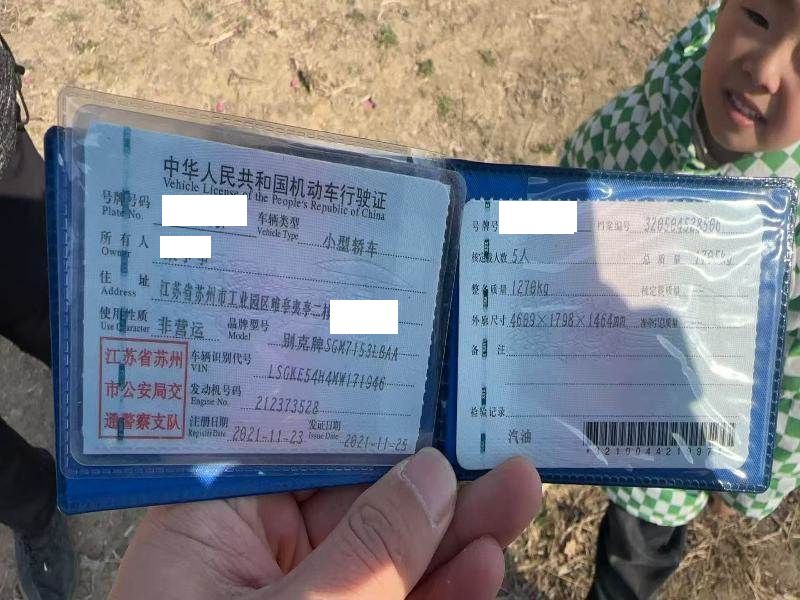 中华人民共和国机动车行驶证
Vehicle License of the People's Republic of China
号牌号码
Plate No.
车辆类型
Vehicle Type
小型轿车
所有人
Owner
住址
Address
江苏省苏州市工业园区唯亭奥亭二村
使用性质
Use Character
非营运
品牌型号
Model
别克牌SGM7153LBAA
江苏省苏州
市公安局交
通警察支队
车辆识别代号
VIN
LSGKE54H4MW171946
发动机号码
Engine No.
212373528
注册日期
Register Date
2021-11-23
发证日期
Issue Date
2021-11-25
号牌号
档案编号
核定载人数 5人
总质量
整备质量 1270kg
核定载质量
外廓尺寸 4609×1798×1464mm
备注
检验记录
汽油